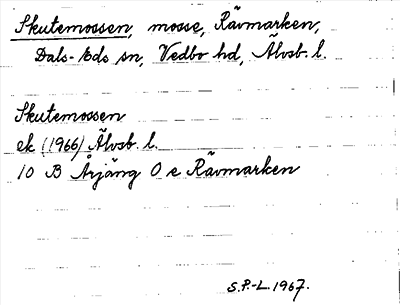 Skutemossen, mosse, Rävmarken,
Dals-Eds sn, Vedbo hd, Älvsb. l.
Skutemossen
ek (1966) Älvsb. l.
10 B Årjäng O e Rävmarken
S.P.-L. 1967.